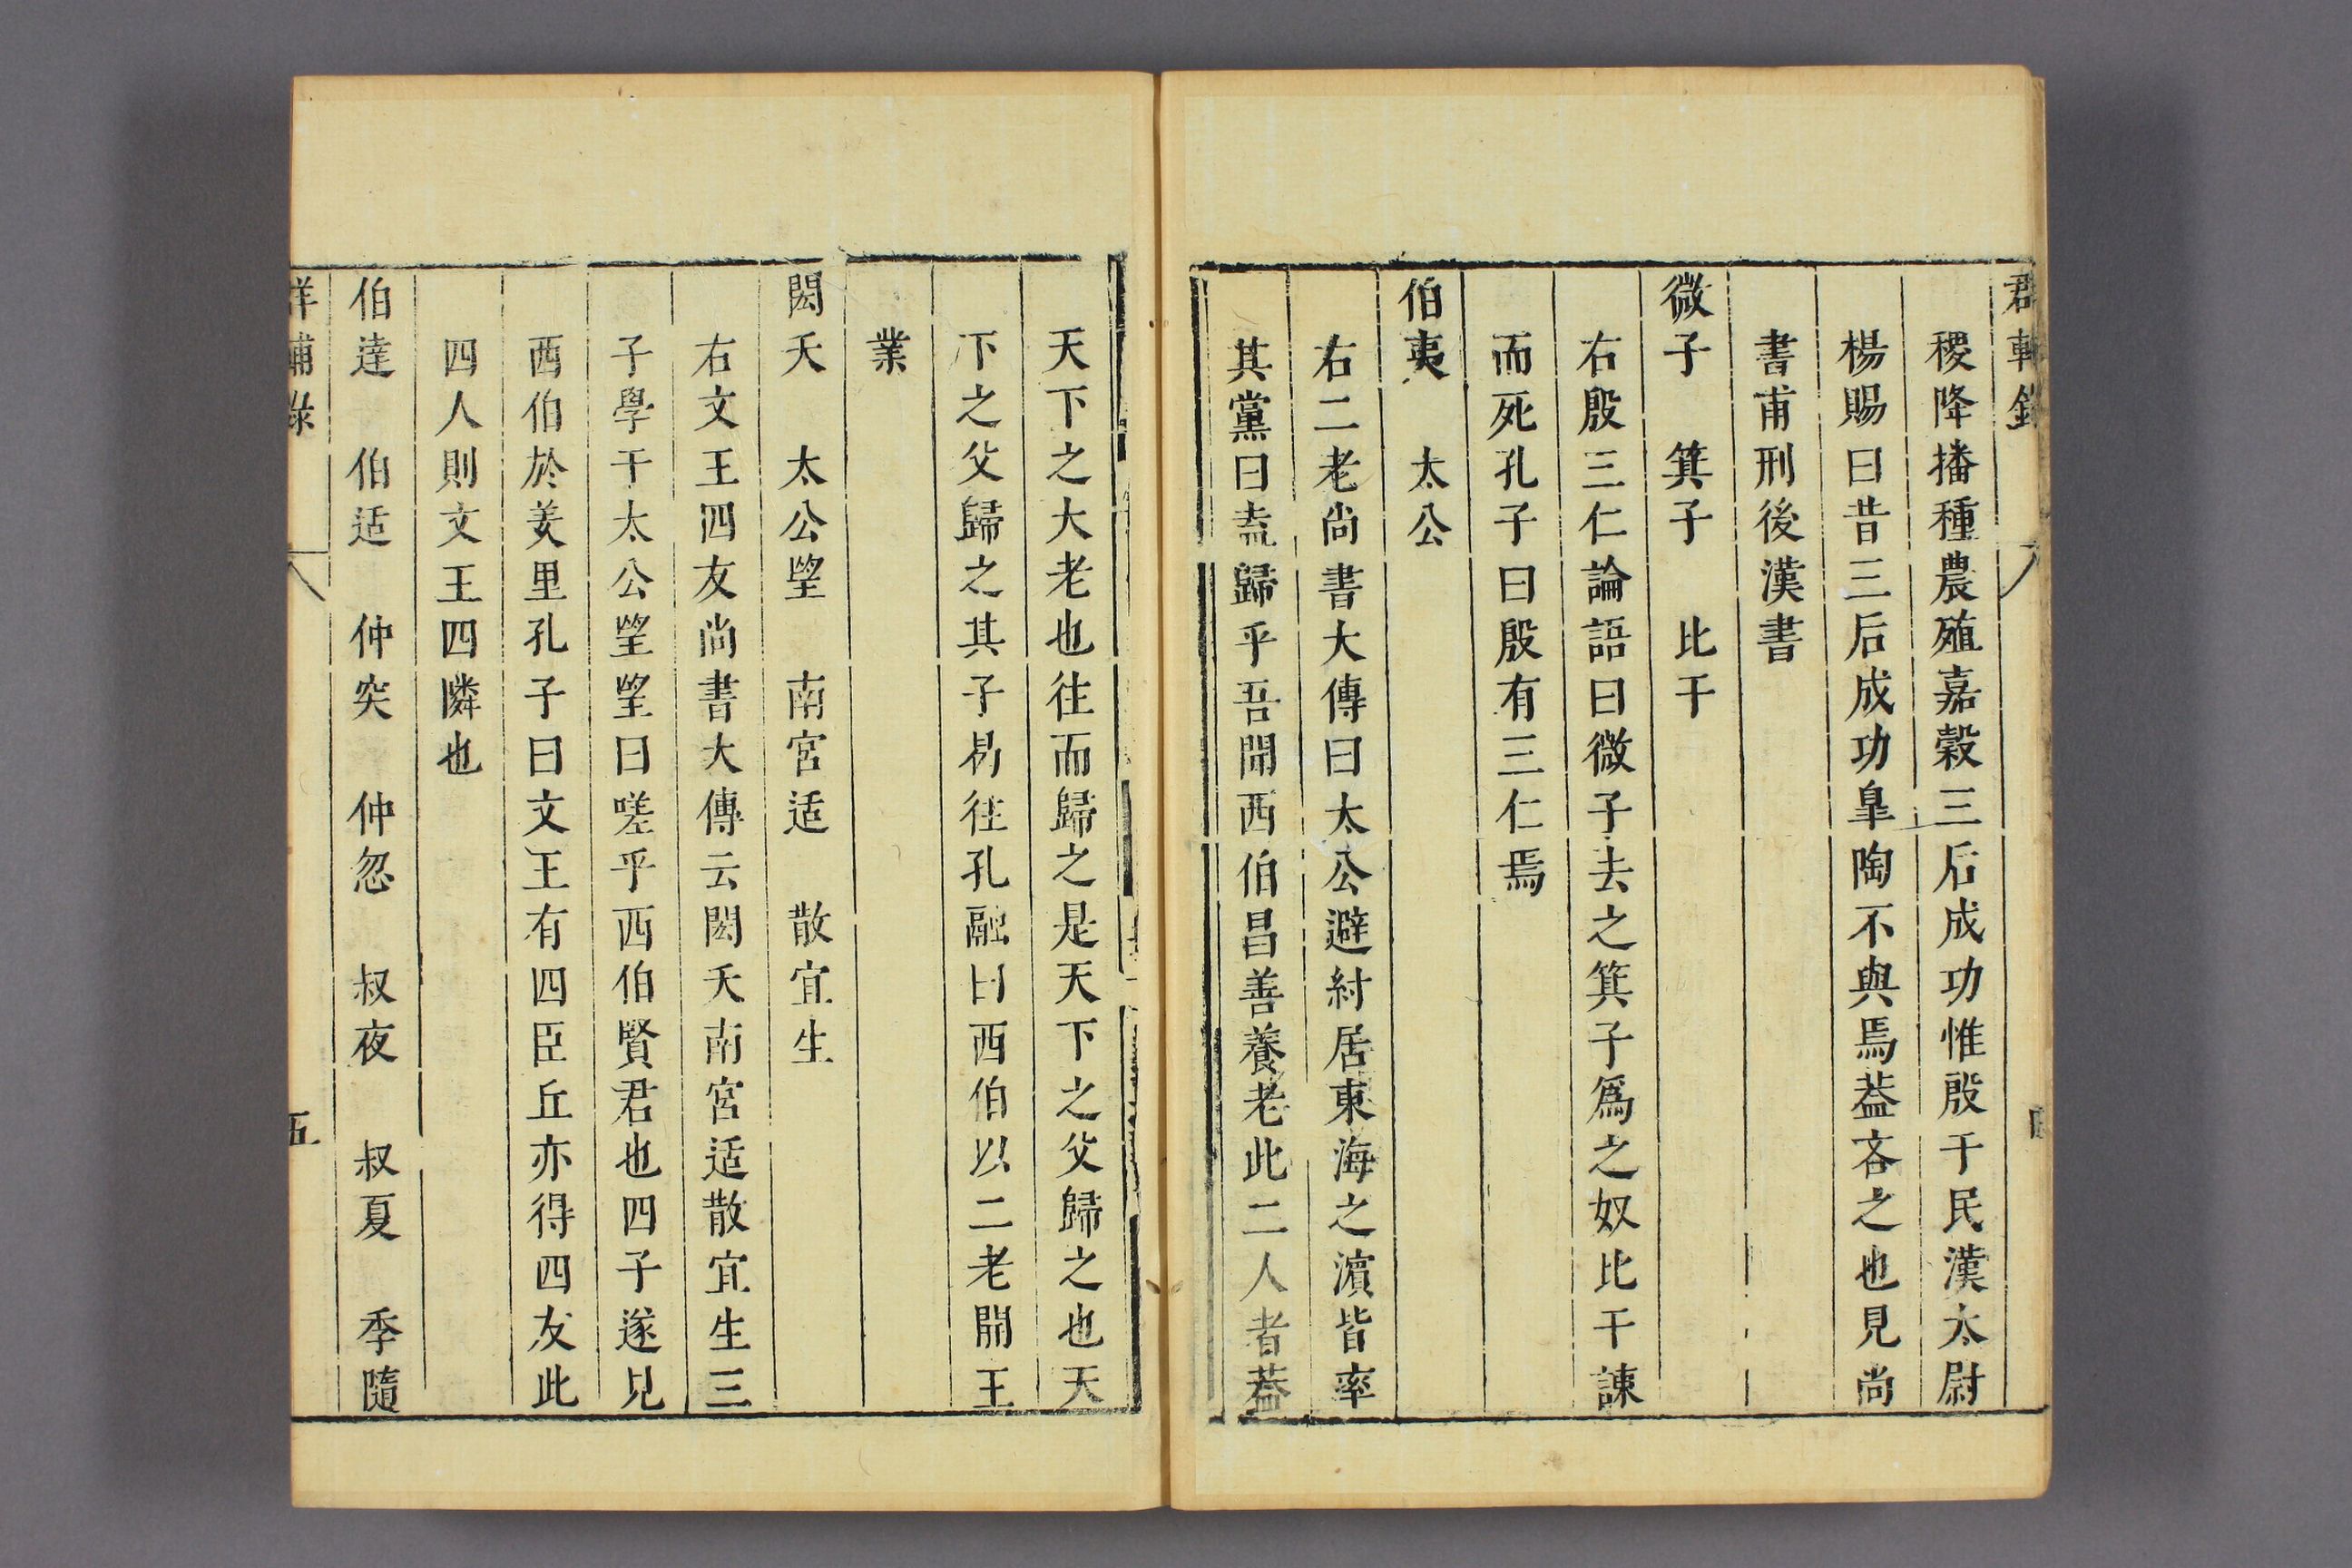 稷降播種農殖嘉穀三后成功惟殷于民漢太尉
楊賜曰昔三后成功臯陶不與焉葢吝之也見尚
書甫刑後漢書
微子　箕子　比干
右殷三仁論語曰微子去之箕子爲之奴比干諫
而死孔子曰殷有三仁焉
伯夷　太公
右二老尚書大傳曰太公避紂居東海之濵皆率
其黨曰盍歸乎吾聞西伯昌善養老此二人者葢
天下之大老也往而歸之是天下之父歸之也天
下之父歸之其子曷往孔融曰西伯以二老開王
業
閎夭　太公望　南宮适　散宜生
右文王四友尚書大傳云閎夭南宮适散宜生三
子學于太公望望曰嗟乎西伯賢君也四子遂見
西伯於羑里孔子曰文王有四臣丘亦得四友此
四人則文王四隣也
伯達　伯适　仲突　仲忽　叔夜　叔夏　季隨
羣輔錄　五